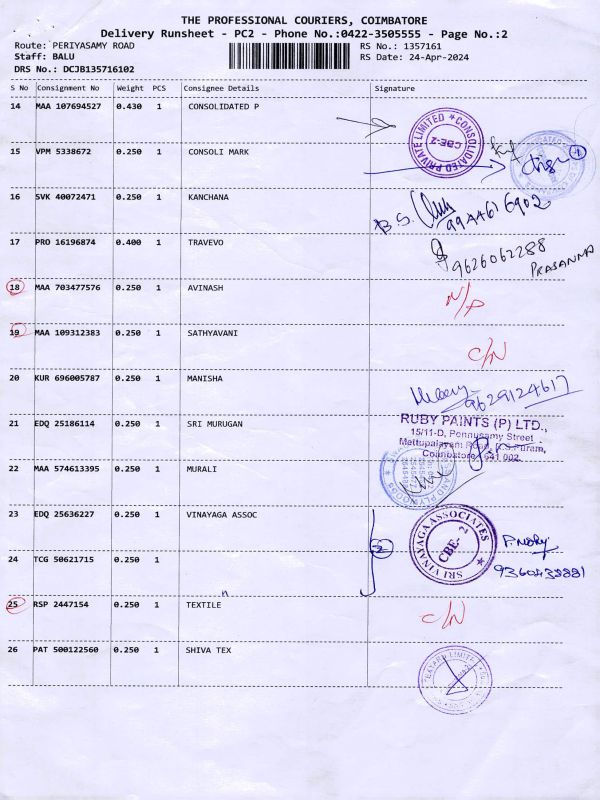 THE PROFESSIONAL COURIERS, COIMBATORE
Delivery Runsheet - PC2 - Phone No.:0422-3505555 - Page No.:2
Route: PERIYASAMY ROAD
Staff: BALU
DRS No.: DCJB135716102
RS No.: 1357161
RS Date: 24-Apr-2024
S No Consignment No Weight PCS Consignee Details Signature
14 MAA 107694527 0.430 1 CONSOLIDATED P
CONSOLIDATED PRIVATE LIMITED
CBE-2
15 VPM 5338672 0.250 1 CONSOLI MARK
16 SVK 40072471 0.250 1 KANCHANA
B.S.
9944616902
17 PRO 16196874 0.400 1 TRAVEVO
9626062288
PRASANNA
18 MAA 703477576 0.250 1 AVINASH N/P
19 MAA 109312383 0.250 1 SATHYAVANI C/N
20 KUR 696005787 0.250 1 MANISHA
9629124617
21 EDQ 25186114 0.250 1 SRI MURUGAN
RUBY PAINTS (P) LTD.,
15/11-D, Ponnusamy Street
Mettupalayam Road, R.S.Puram,
Coimbatore - 641 002.
22 MAA 574613395 0.250 1 MURALI
23 EDQ 25636227 0.250 1 VINAYAGA ASSOC
SRI VINAYAGA ASSOCIATES
CBE-2
24 TCG 50621715 0.250 1
2
9360432881
25 RSP 2447154 0.250 1 TEXTILE C/N
26 PAT 500122560 0.250 1 SHIVA TEX